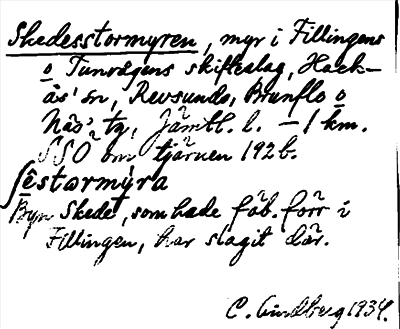 Skedesstormyren, myr i Fillingens
o Tunvågens skifteslag, Hack-
ås' sn, Revsunds, Brunflo o
Näs' tg, Jämtl. l. – 1 km.
SSO om tjärnen 192 b.
ʃēstormȳra
Byn Skede, som hade fäb. förr i
Fillingen, har slagit där.
C. Lindberg 1934.